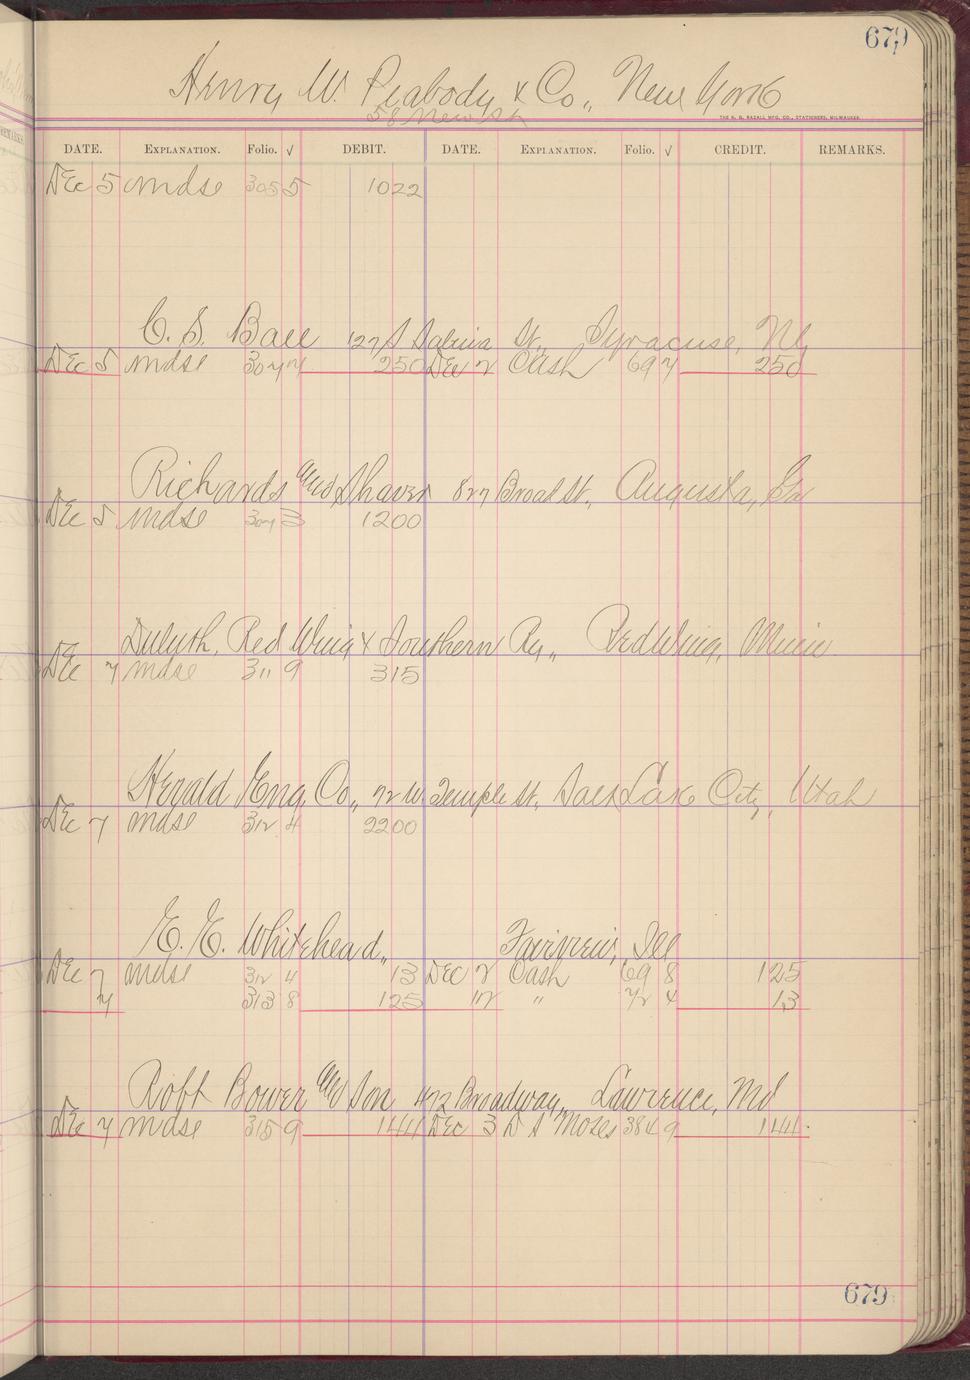 679
Henry W. Peabody & Co., New York
58 New St
THE H. G. RAZALL MFG. CO., STATIONERS, MILWAUKEE.
DATE. EXPLANATION. Folio. √ DEBIT. DATE. EXPLANATION. Folio. √ CREDIT. REMARKS.
Dec 5 mdse 305 5 1022
C. S. Ball 127 S Salina St., Syracuse, NY
Dec 5 mdse 307 7 250 Dec 2 Cash 69 7 250
Richards and Shaver 827 Broad St., Augusta, Ga
Dec 5 mdse 307 3 1200
Duluth, Red Wing & Southern Ry., Red Wing, Minn
Dec 7 mdse 311 9 315
Herald Eng Co., 72 W. Temple St. Salt Lake City, Utah
Dec 7 mdse 312 4 2200
E. E. Whitehead, Fairview, Ill
Dec 7 mdse 312 4 13 Dec 2 Cash 69 8 125
7 313 8 125 12 " 72 4 13
Robt Bower and Son 472 Broadway, Lawrence, Md
Dec 7 mdse 315 9 144 Dec 3 D S Moses 384 9 144
679